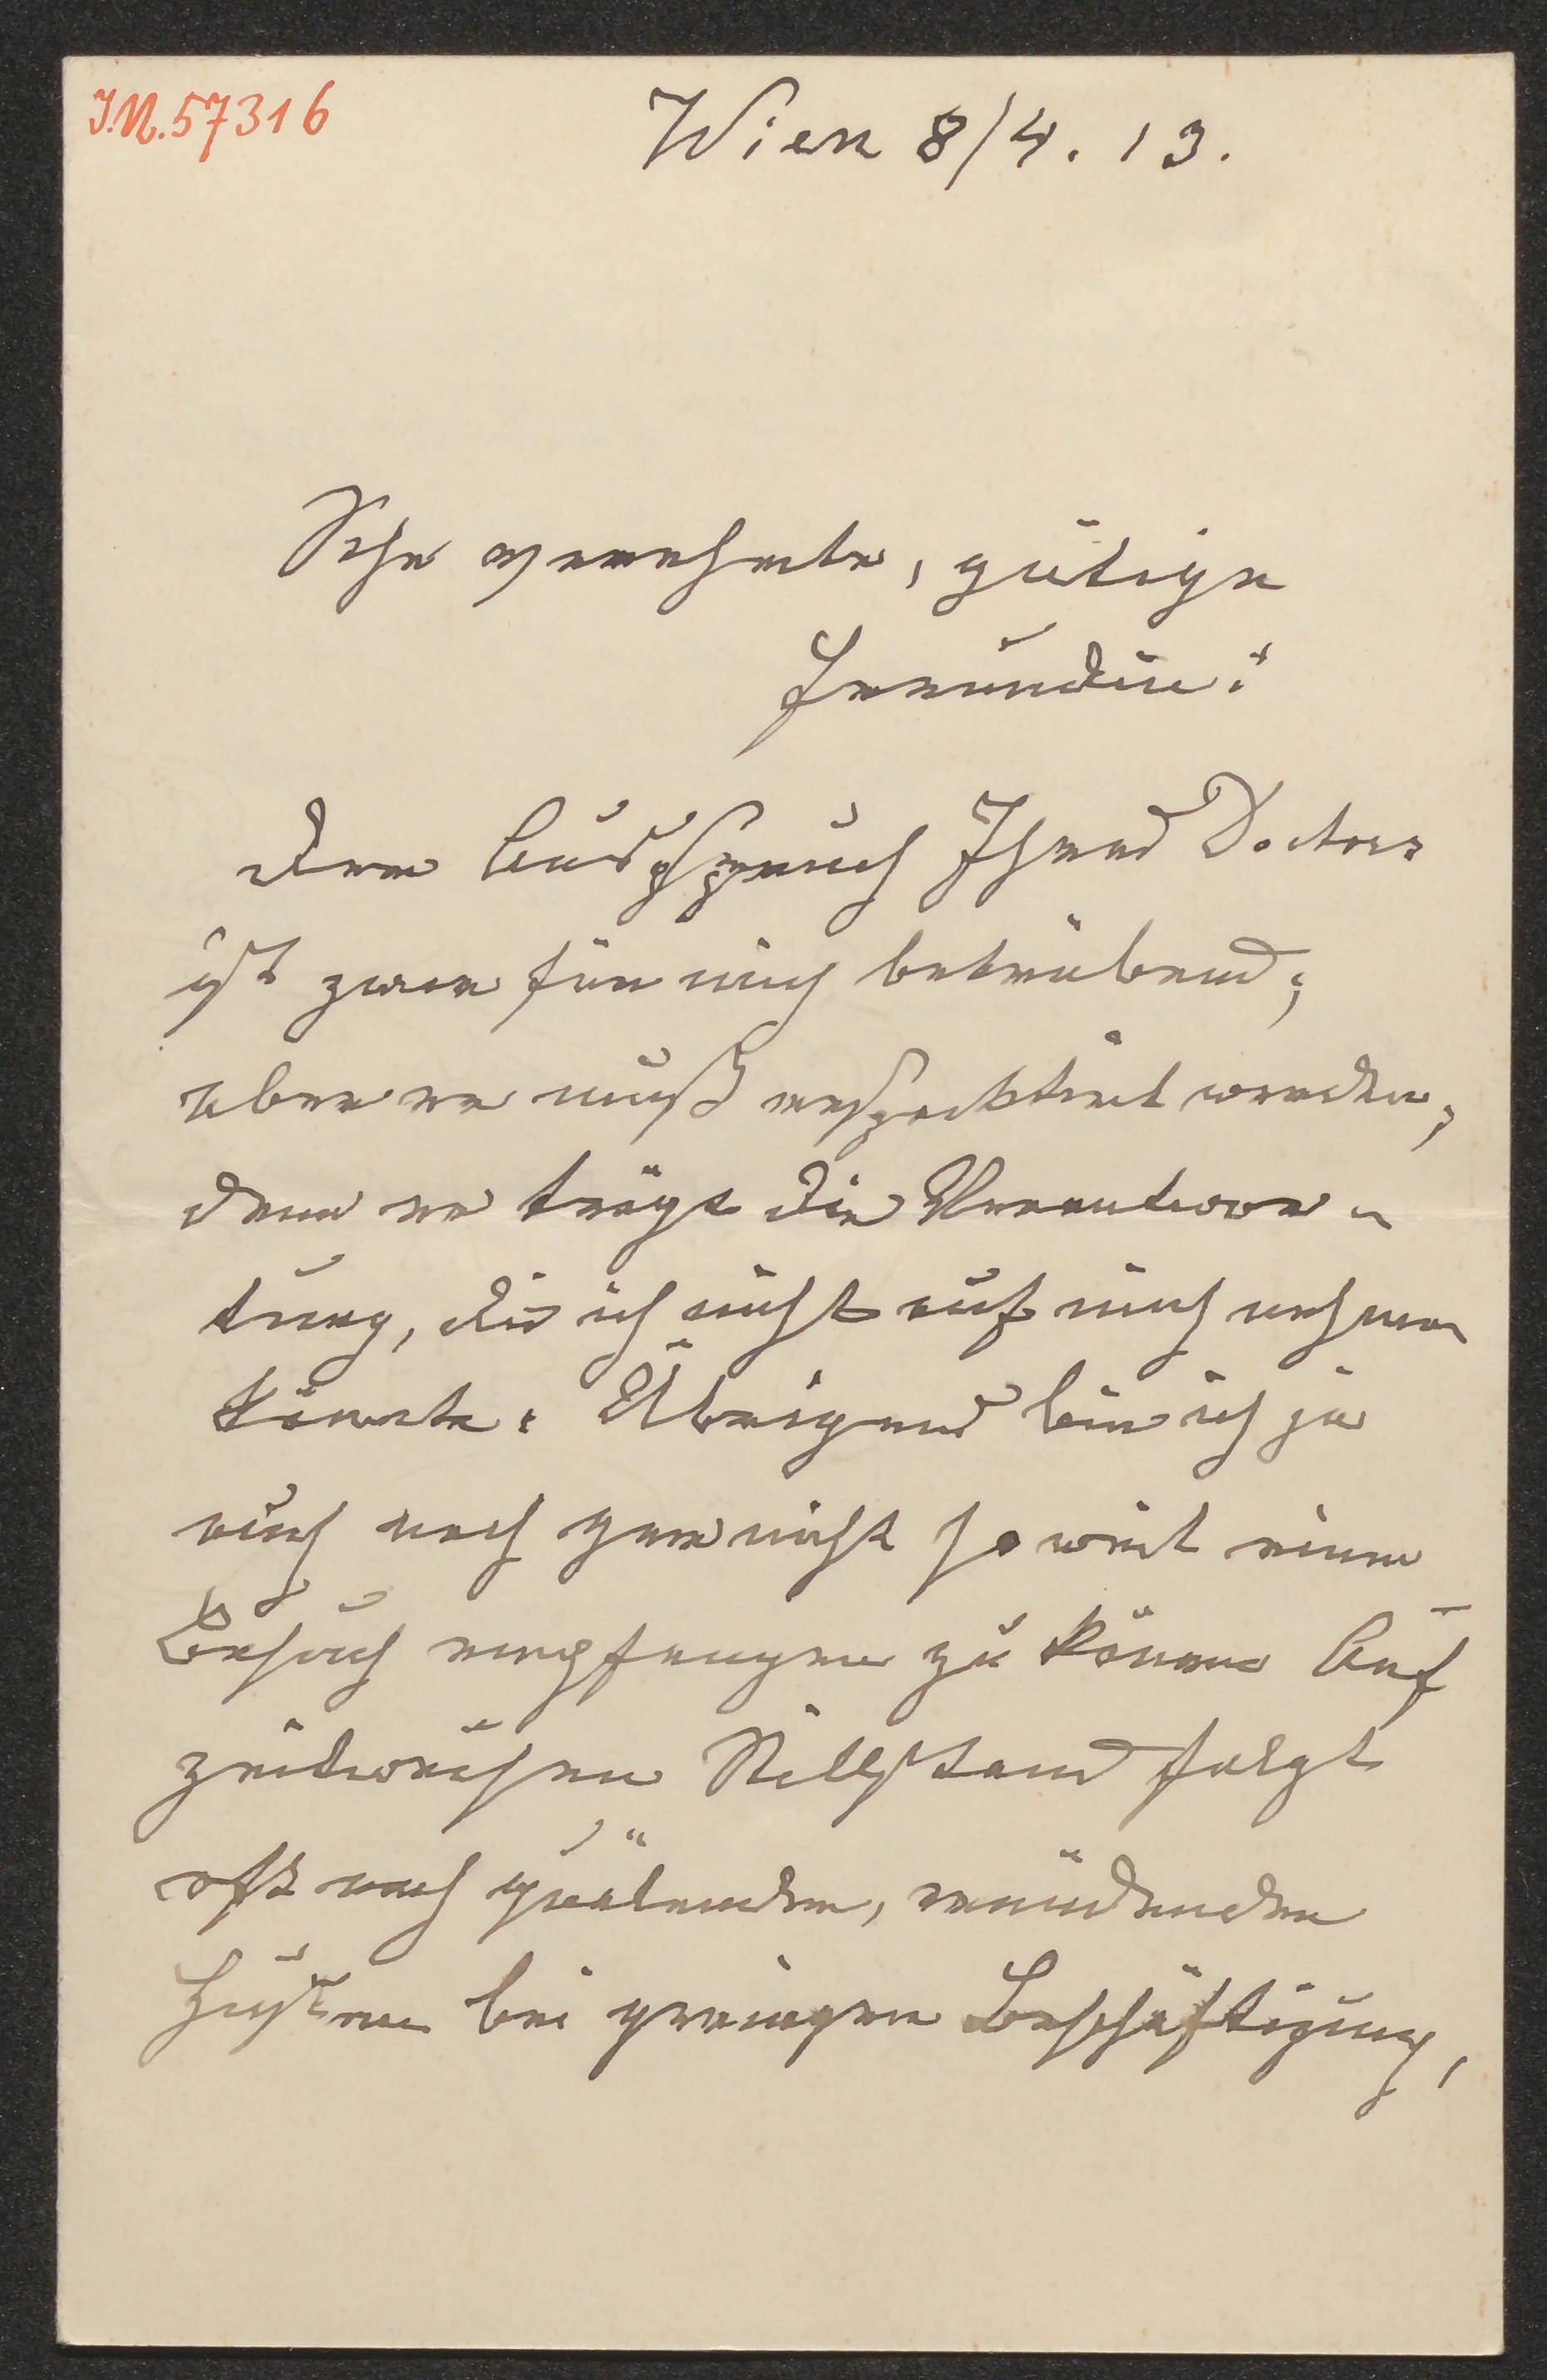 I.N. 57316
Wien 8/4. 13.
Sehr verehrte, gütige
Freundin!
Der Ausspruch Ihres Doctors
ist zwar für mich betrübend;
aber er muß respecktirt werden;
denn er trägt die Verantwor-
tung, die ich nicht auf mich nehmen
könnte. Übrigens bin ich ja
auch noch gar nicht so weit einen
Besuch empfangen zu können Auf
zeitweisen Stillstand folgt
oft noch quälender, ermüdender
Husten bei geringer Beschäftigung,